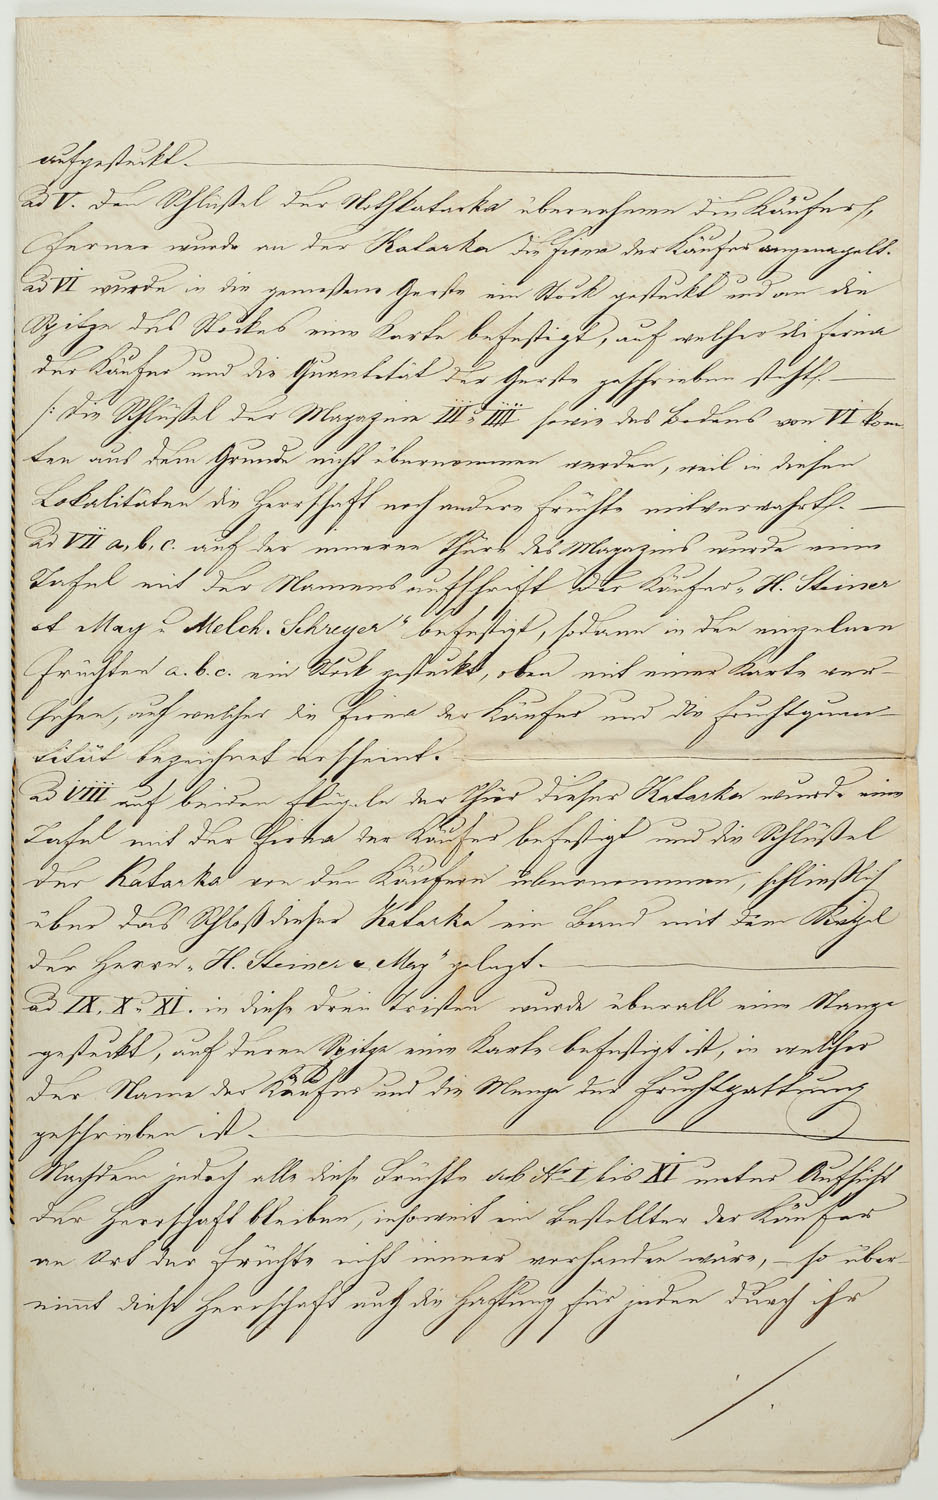 aufgesteckt.
ad V. Den Schlüßel der Nothkatarka übernehmen die Käufer,
Ferner wurde an der Katarka die Firma der Käufer angenagelt.
ad VI wurde in die gemessene Gerste ein Stock gesteckt und an die
Spitze des Stockes eine Karte befestigt, auf welcher die Firma
der Käufer und die Quantität der Gerste geschrieben steht.
/: Die Schlüßel der Magazine III u IIII sowie des Bodens von VI konn
ten aus dem Grunde nicht übernommen werden, weil in diesen
Lokalitäten die Herrschaft noch andere Früchte mitverwahrt.
ad VII a, b, c. auf der inneren Thüre des Magazins wurde eine
Tafel mit der Namensaufschrift der Käufer "H. Steiner
et May u Melch. Schreyer" befestigt, sodann in den einzelnen
Früchten a. b. c. ein Stock gesteckt, oben mit einer Karte ver-
sehen, auf welcher die Firma der Käufer und die Fruchtquan-
tität bezeichnet erscheint.
ad VIII auf beiden Flügeln der Thür dieser Katarka wurde eine
Tafel mit der Firma der Käufer befestigt und die Schlüßel
der Katarka von den Käufern übernommen, schließlich
über das Schloß dieser Katarka ein Band mit dem Siegel
der Herrn "H. Steiner & May" gelegt.
ad IX, X u XI. in diese drei Tristen wurde überall eine Stange
gesteckt, auf deren Spitze eine Karte befestigt ist, in welcher
der Name der Käufer und die Menge der Fruchtgattung
geschrieben ist.
Nachdem jedoch alle diese Früchte sub No I bis XI unter Aufsicht
der Herrschaft bleiben, insoweit ein Bestellter der Käufer
an Ort der Früchte nicht immer vorhanden wäre, – so über-
nimmt diese Herrschaft auch die Haftung für jeden durch ihr
./.